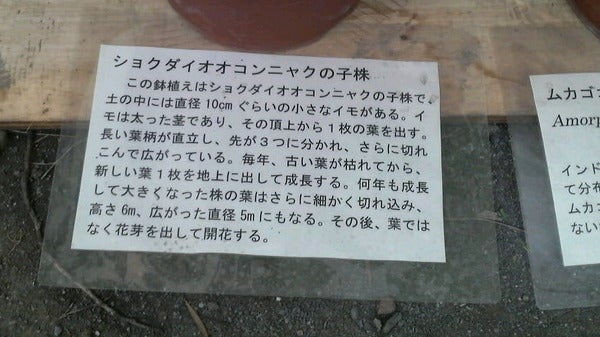 ショクダイオオコンニャクの子株
この鉢植えはショクダイオオコンニャクの子株で、
土の中には直径10cmぐらいの小さなイモがある。イ
モは太った茎であり、その頂上から1枚の葉を出す。
長い葉柄が直立し、先が3つに分かれ、さらに切れ
こんで広がっている。毎年、古い葉が枯れてから、
新しい葉1枚を地上に出して成長する。何年も成長
して大きくなった株の葉はさらに細かく切れ込み、
高さ6m、広がった直径5mにもなる。その後、葉では
なく花芽を出して開花する。
ムカゴコ
Amorp
インド
て分布
ムカゴ
ない